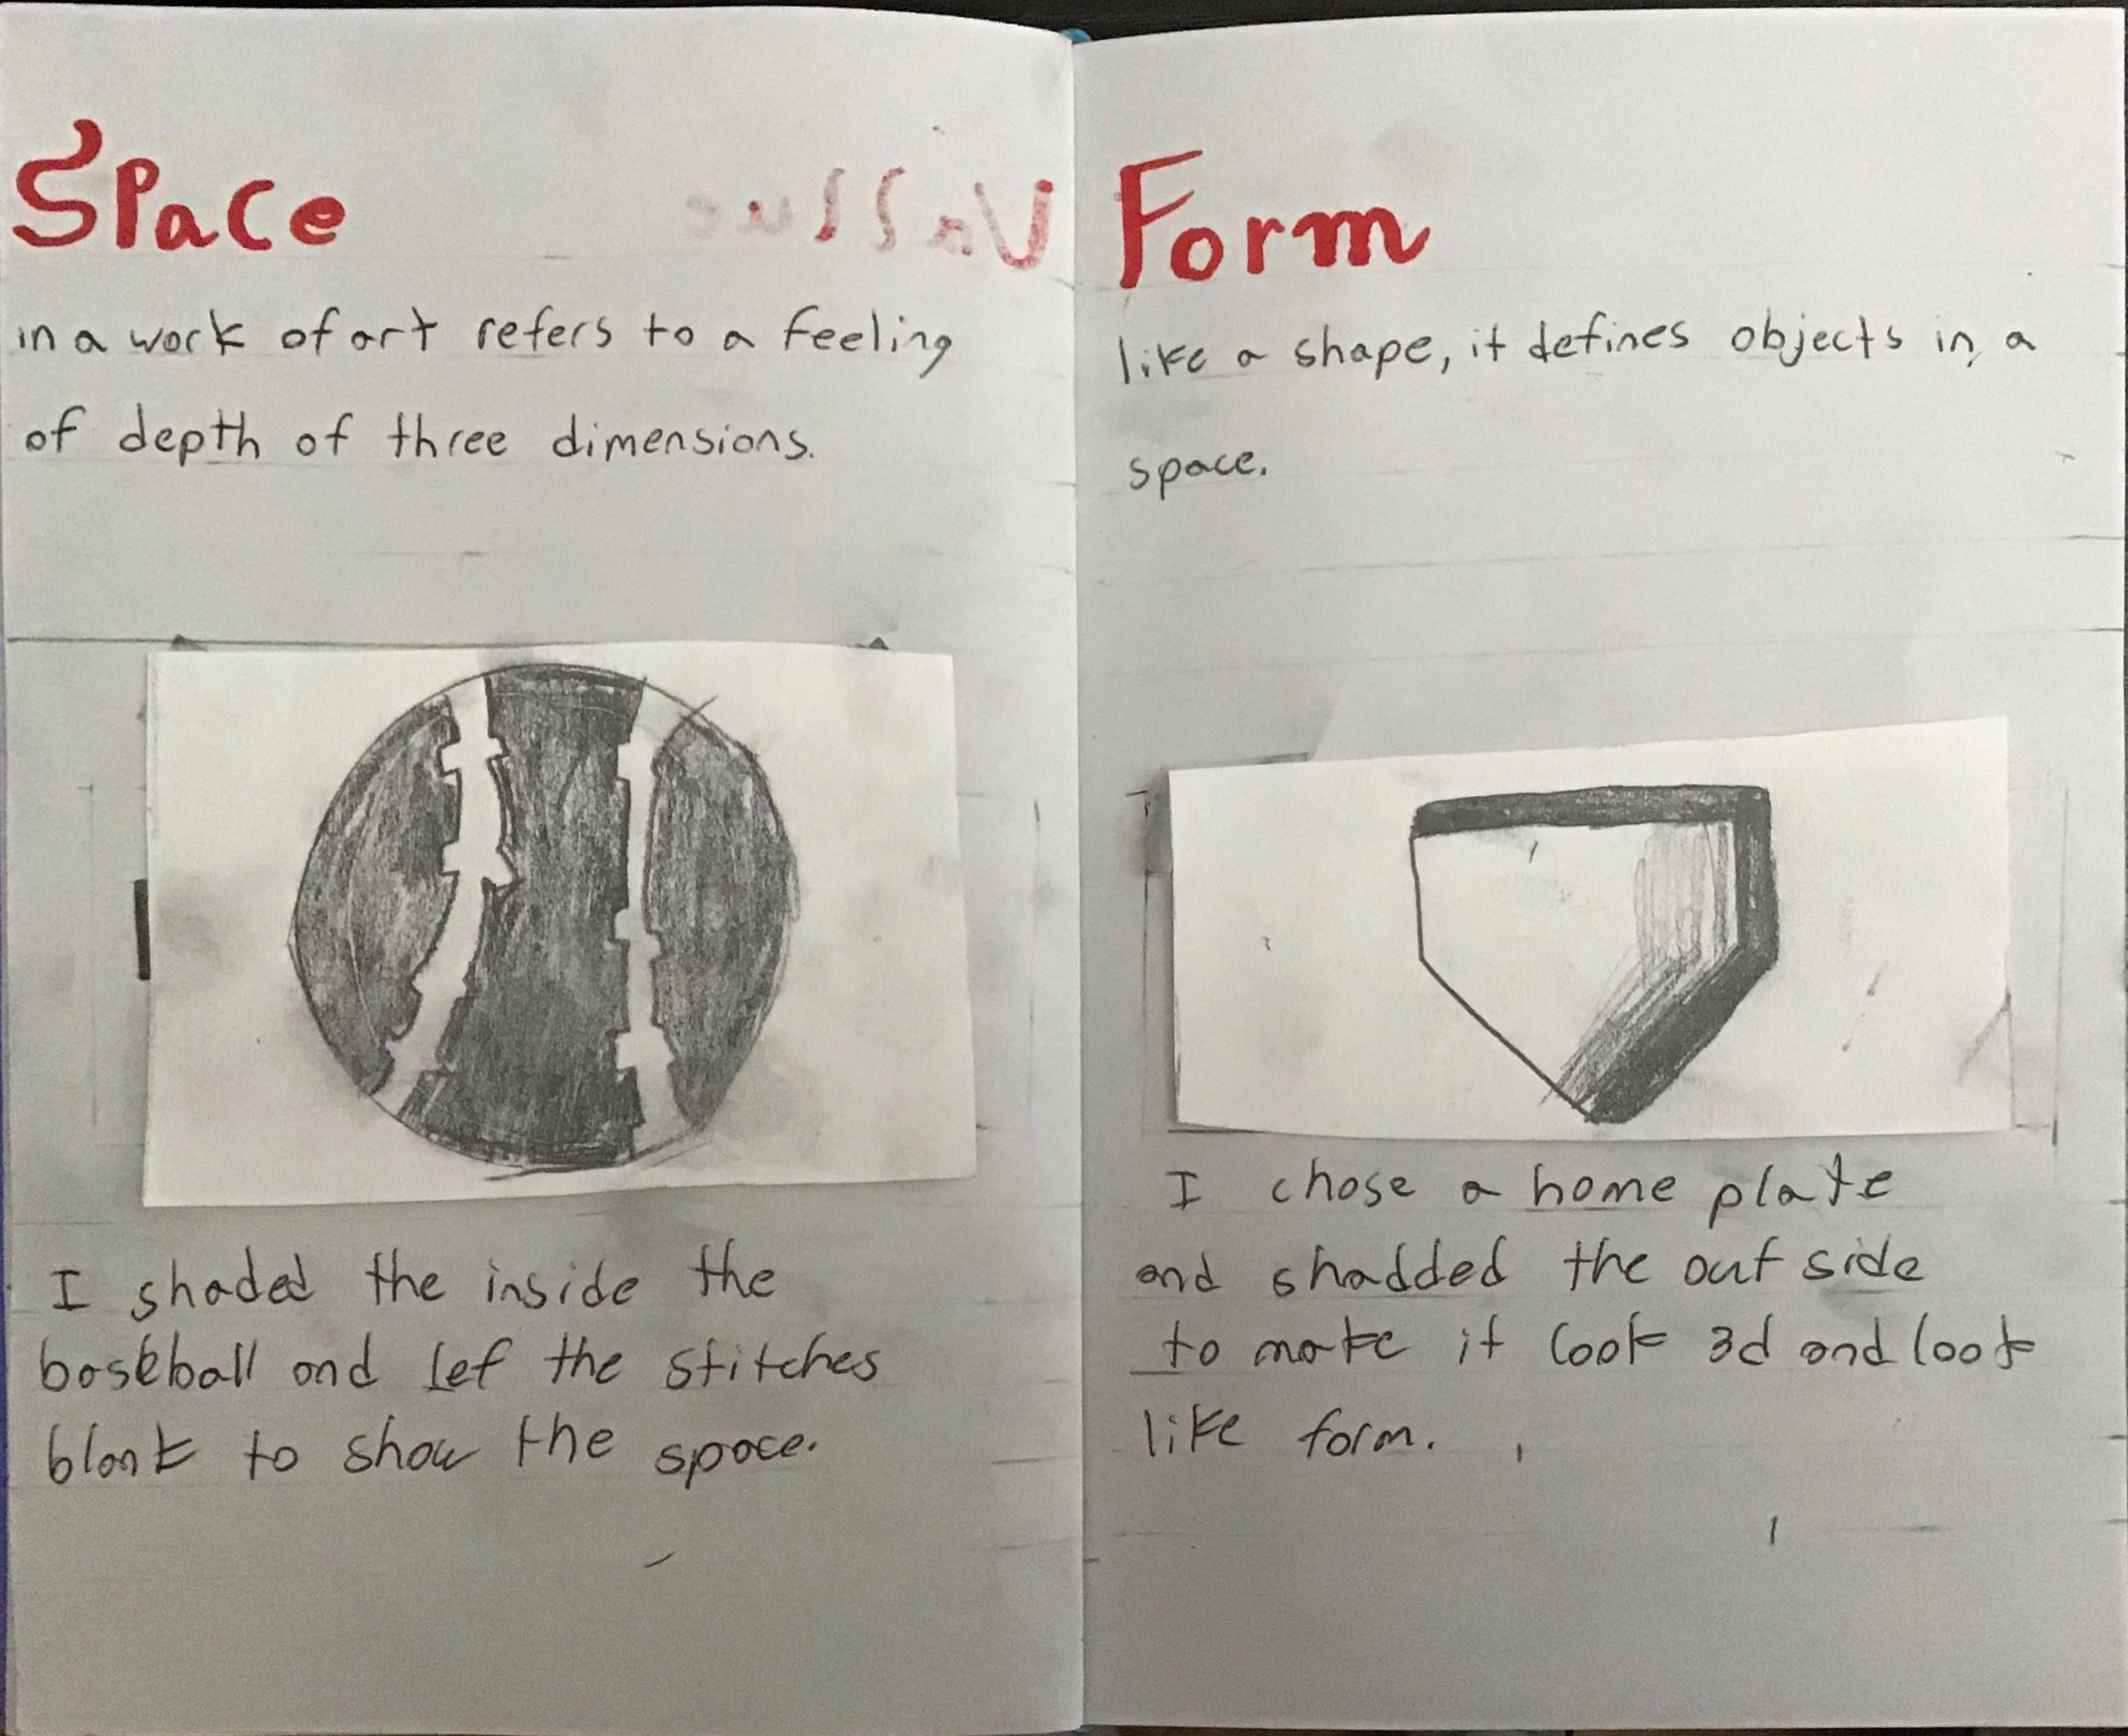 Space
in a work of art refers to a feeling
of depth of three dimensions.
I shaded the inside the
baseball and lef the stitches
blank to show the space.
Form
like a shape, it defines objects in a
space.
I chose a home plate
and shadded the out side
to make it look 3d and look
like form.